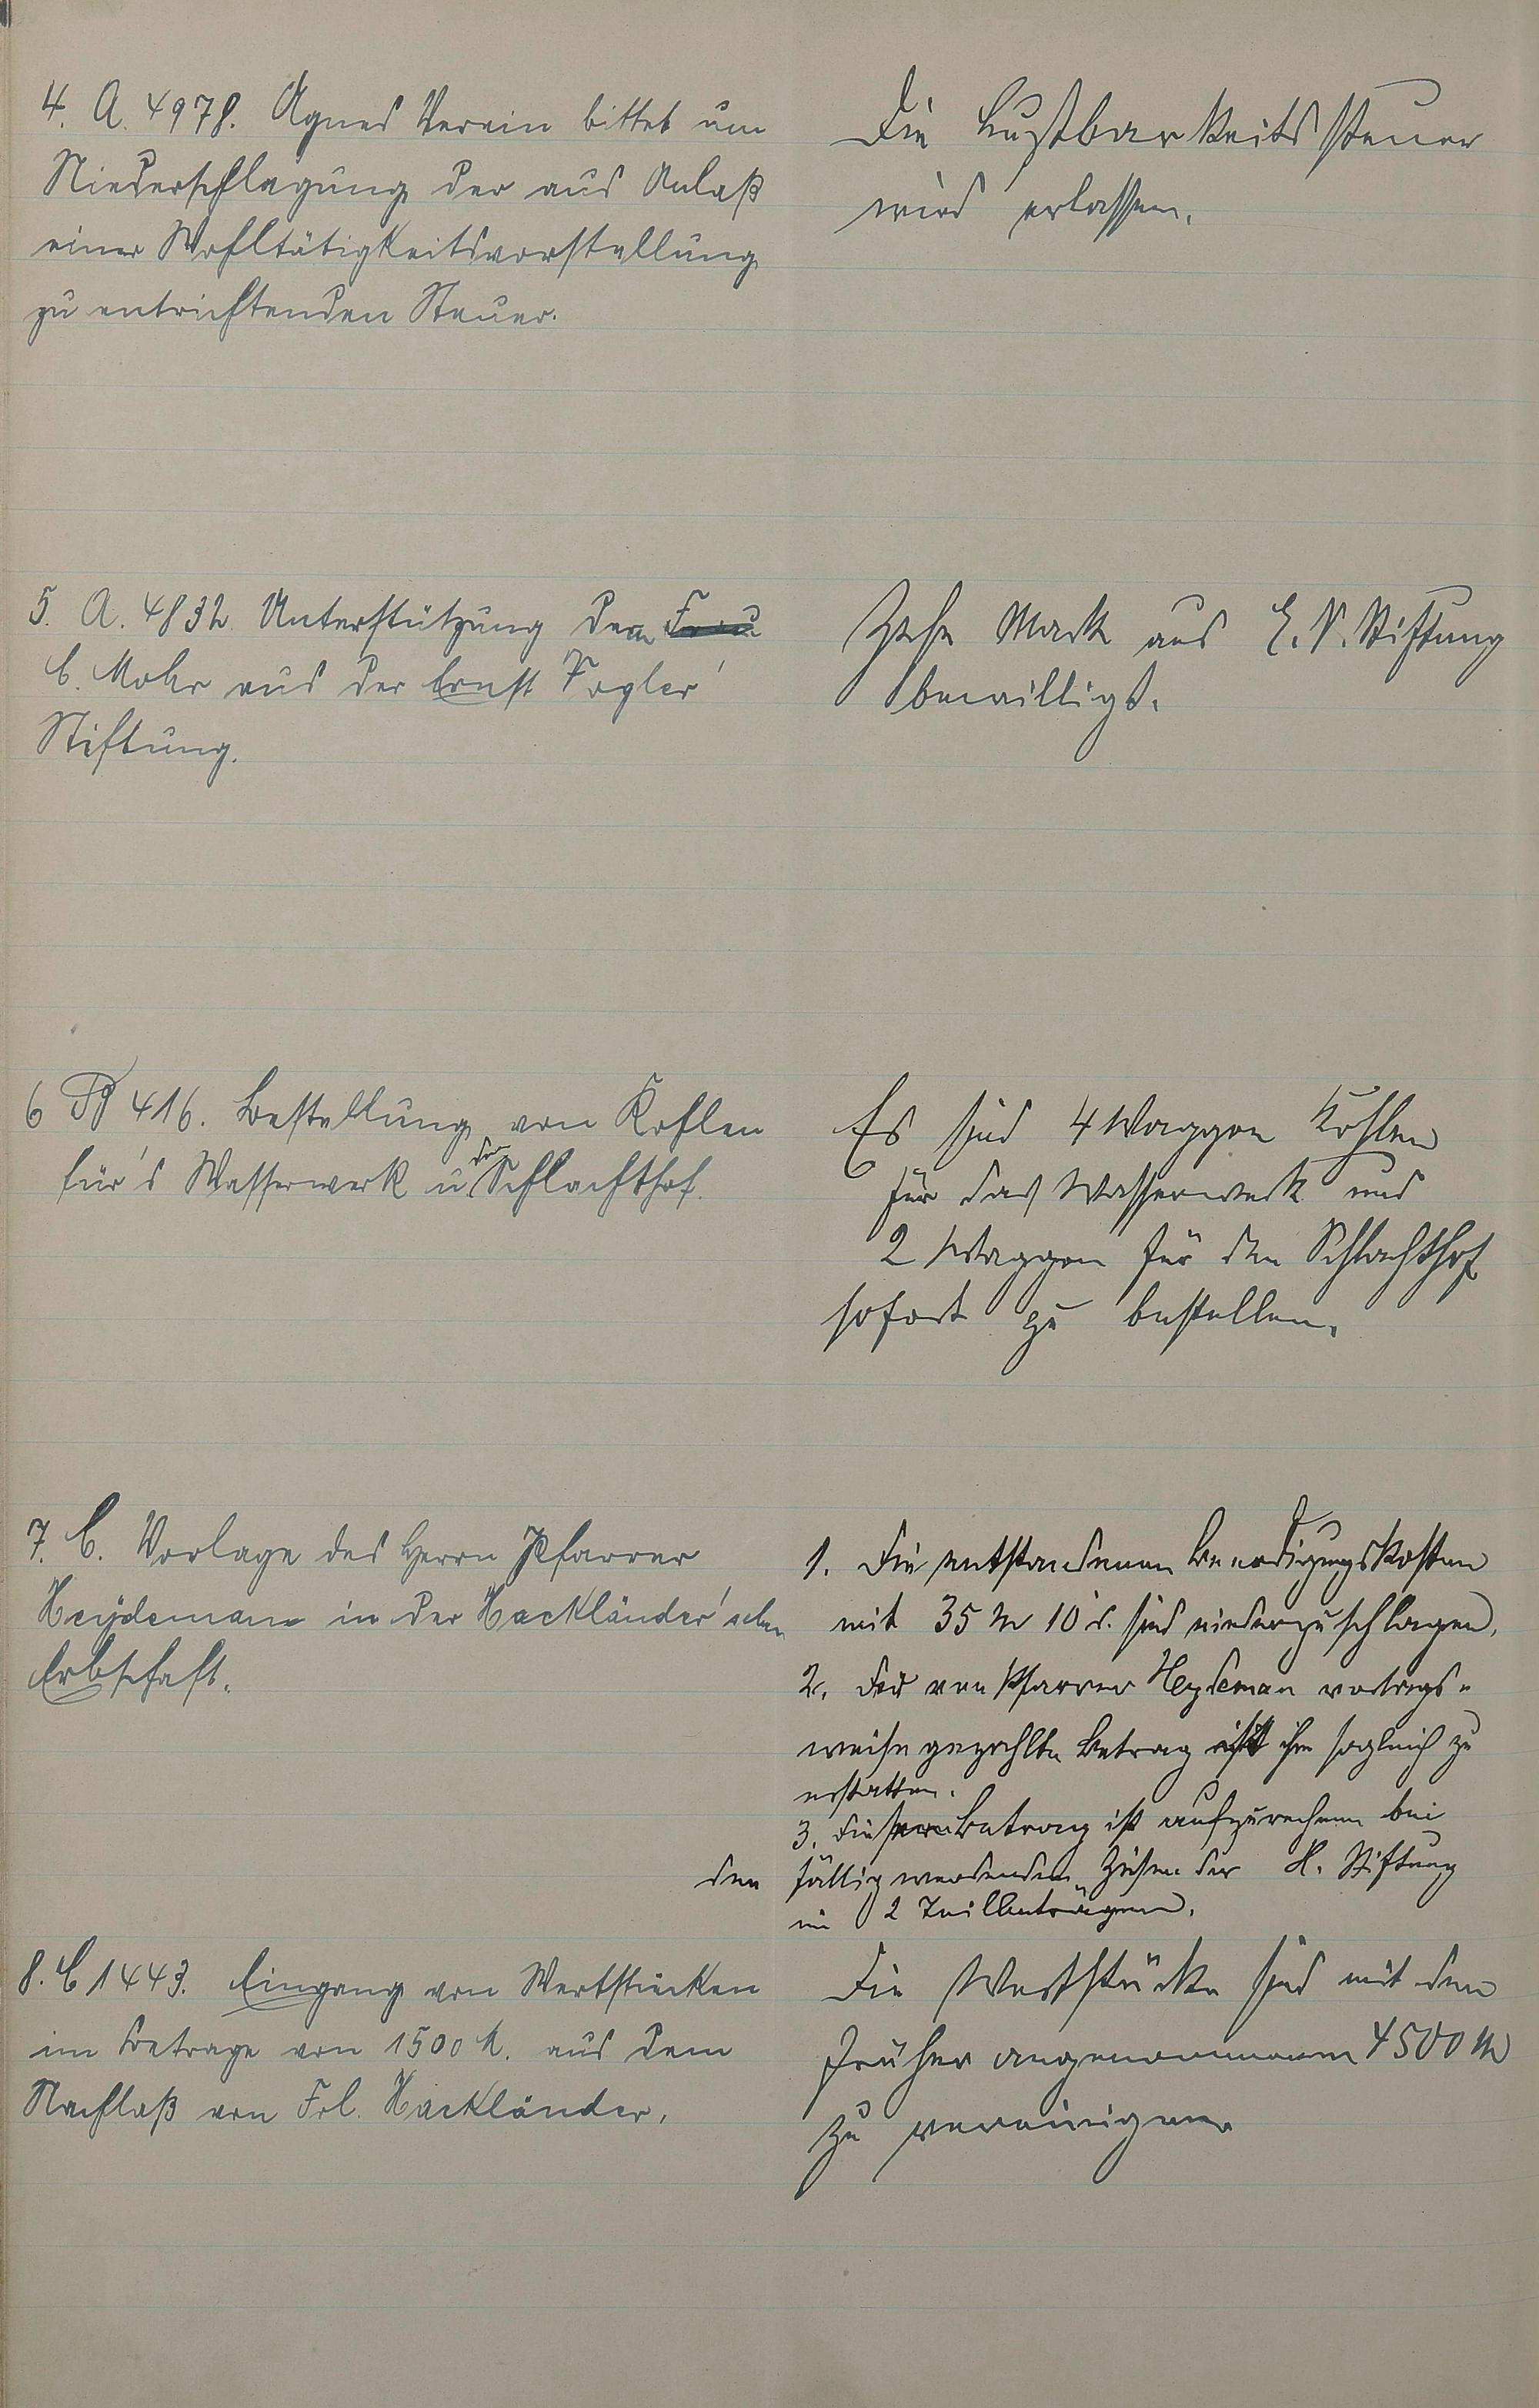 4. A. 4978. Agnes Verein bittet um
Niederschlagung der aus Anlaß
einer Wohltätigkeitsvorstellung
zu entrichtenden Steuer.
Die Lustbarkeitssteuer
wird erlassen.
5. A. 4832. Unterstützung der Frau
C. Mohr aus der Ernst Vogler'
Stiftung.
Zehn Mark aus E. V. Stiftung
bewilligt.
6 416. Bestellung von Kohlen
für's Wasserwerk u den Schlachthof.
Es sind 4 Waggon Kohlen
für das Wasserwerk und
2 Waggon für den Schlachthof
sofort zu bestellen.
7. C. Vorlage des Herrn Pfarrer
Heydeman in der Hackländer'schen
Erbschaft.
1. Die entstandenen Beerdigungskosten
mit 35 M 10 d. sind niederzuschlagen.
2. Der von Pfarrer Heydeman vortrags-
weise gezahlte Betrag ist ihm sogleich zu
erstatten.
3. Dieser Betrag ist aufzurechnen bei
den fällig werdenden Zinsen der H. Stiftung
in 2 Teilbeträgen.
8. C 1443. Eingang von Wertstücken
im Betrage von 1500 M. aus dem
Nachlaß von Frl. Hackländer.
Die Wertstücke sind mit den
früher angenommenen 4500 M
zu vereinigen.